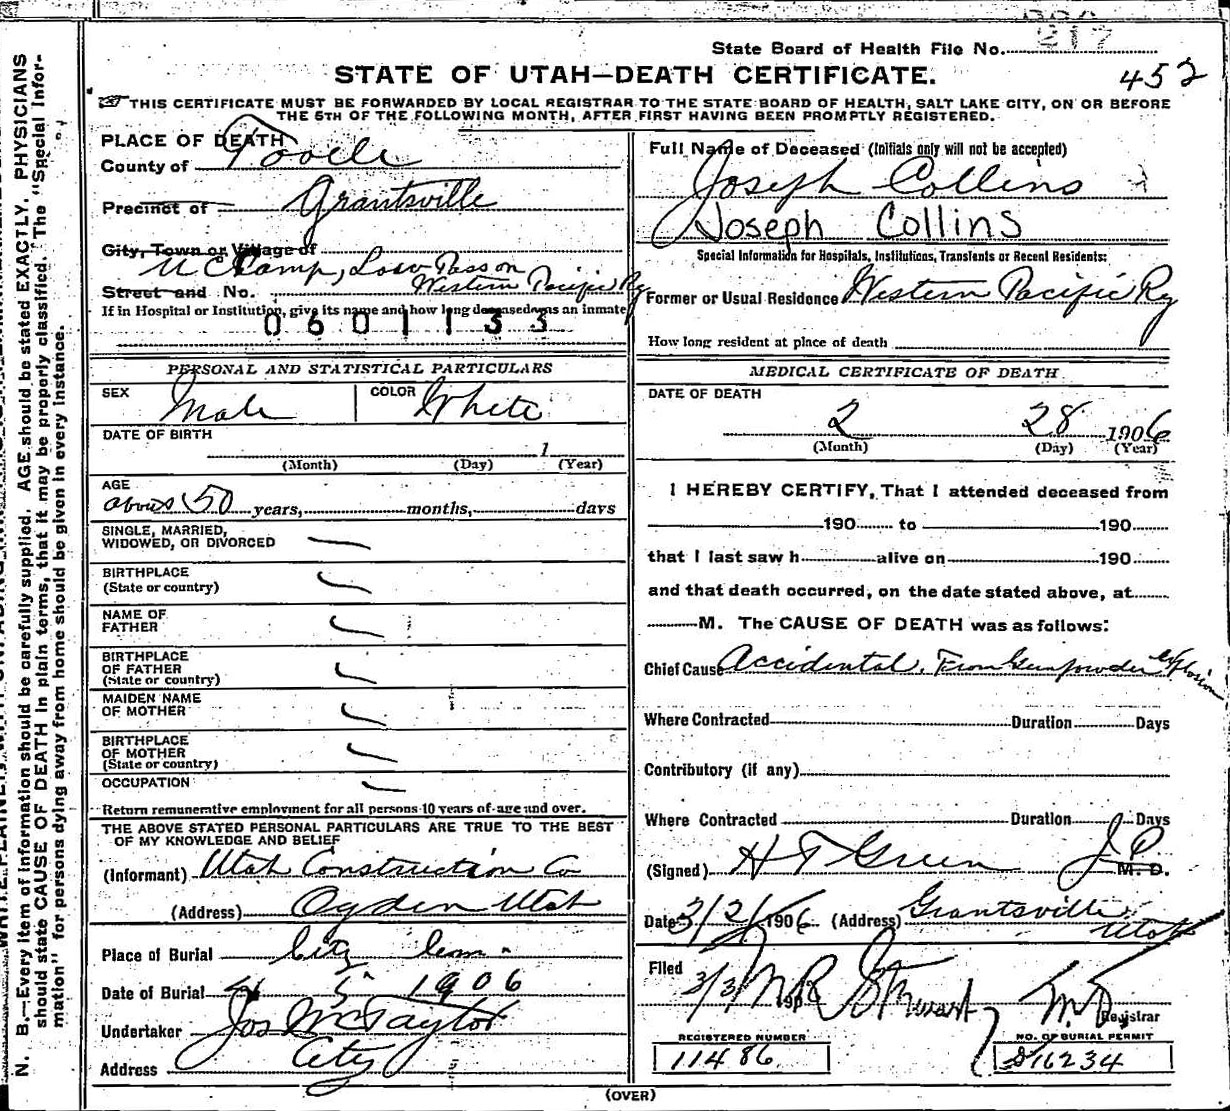 State Board of Health File No. 217
STATE OF UTAH—DEATH CERTIFICATE. 452
THIS CERTIFICATE MUST BE FORWARDED BY LOCAL REGISTRAR TO THE STATE BOARD OF HEALTH, SALT LAKE CITY, ON OR BEFORE
THE 5TH OF THE FOLLOWING MONTH, AFTER FIRST HAVING BEEN PROMPTLY REGISTERED.
PLACE OF DEATH
County of Tooele
Precinct of Grantsville
City, Town or Village of
U C Camp, Low Pass on
Western Pacific Ry
Street and No.
If in Hospital or Institution, give its name and how long deceased was an inmate
0601133
PERSONAL AND STATISTICAL PARTICULARS
SEX Male COLOR White
DATE OF BIRTH
1
(Month) (Day) (Year)
AGE
about 50 years, months, days
SINGLE, MARRIED,
WIDOWED, OR DIVORCED
BIRTHPLACE
(State or country)
NAME OF
FATHER
BIRTHPLACE
OF FATHER
(State or country)
MAIDEN NAME
OF MOTHER
BIRTHPLACE
OF MOTHER
(State or country)
OCCUPATION
Return remunerative employment for all persons 10 years of age and over.
THE ABOVE STATED PERSONAL PARTICULARS ARE TRUE TO THE BEST
OF MY KNOWLEDGE AND BELIEF
(Informant) Utah Construction Co
(Address) Ogden Utah
Place of Burial City Cem.
Date of Burial 5 1906
Undertaker Jos Wm Taylor
Address City
Full Name of Deceased (Initials only will not be accepted)
Joseph Collins
Joseph Collins
Special Information for Hospitals, Institutions, Transients or Recent Residents:
Former or Usual Residence Western Pacific Ry
How long resident at place of death
MEDICAL CERTIFICATE OF DEATH
DATE OF DEATH
2 28 1906
(Month) (Day) (Year)
I HEREBY CERTIFY, That I attended deceased from
190 to 190
that I last saw h alive on 190
and that death occurred, on the date stated above, at
M. The CAUSE OF DEATH was as follows:
Chief Cause Accidental, From Gunpowder explosion
Where Contracted Duration Days
Contributory (if any)
Where Contracted Duration Days
(Signed) H T Green J.P. M. D.
Date 1906 (Address) Grantsville Utah
Filed 3/3 190 M R Stewart M.D. Registrar
REGISTERED NUMBER
11486
NO. OF BURIAL PERMIT
16234
(OVER)
N. B.—Every item of information should be carefully supplied. AGE should be stated EXACTLY. PHYSICIANS
should state CAUSE OF DEATH in plain terms, that it may be properly classified. The "Special Infor-
mation" for persons dying away from home should be given in every instance.